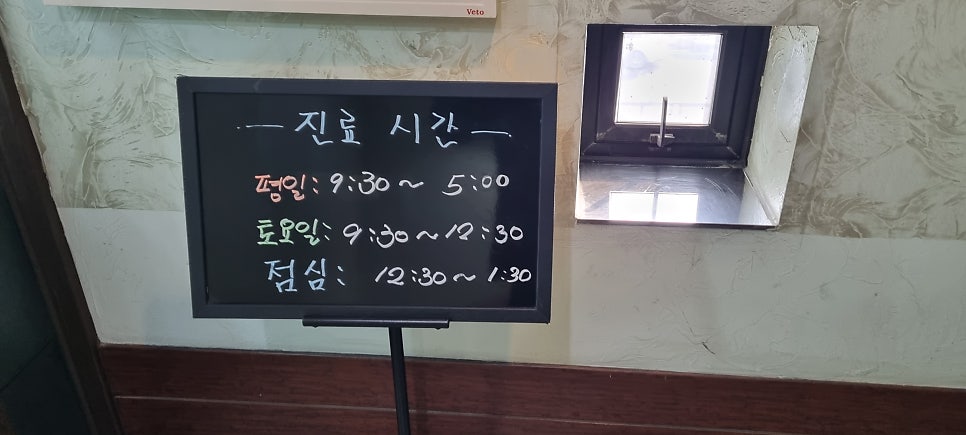 Veto
— 진료 시간 —
평일: 9:30 ~ 5:00
토요일: 9:30 ~ 12:30
점심: 12:30 ~ 1:30